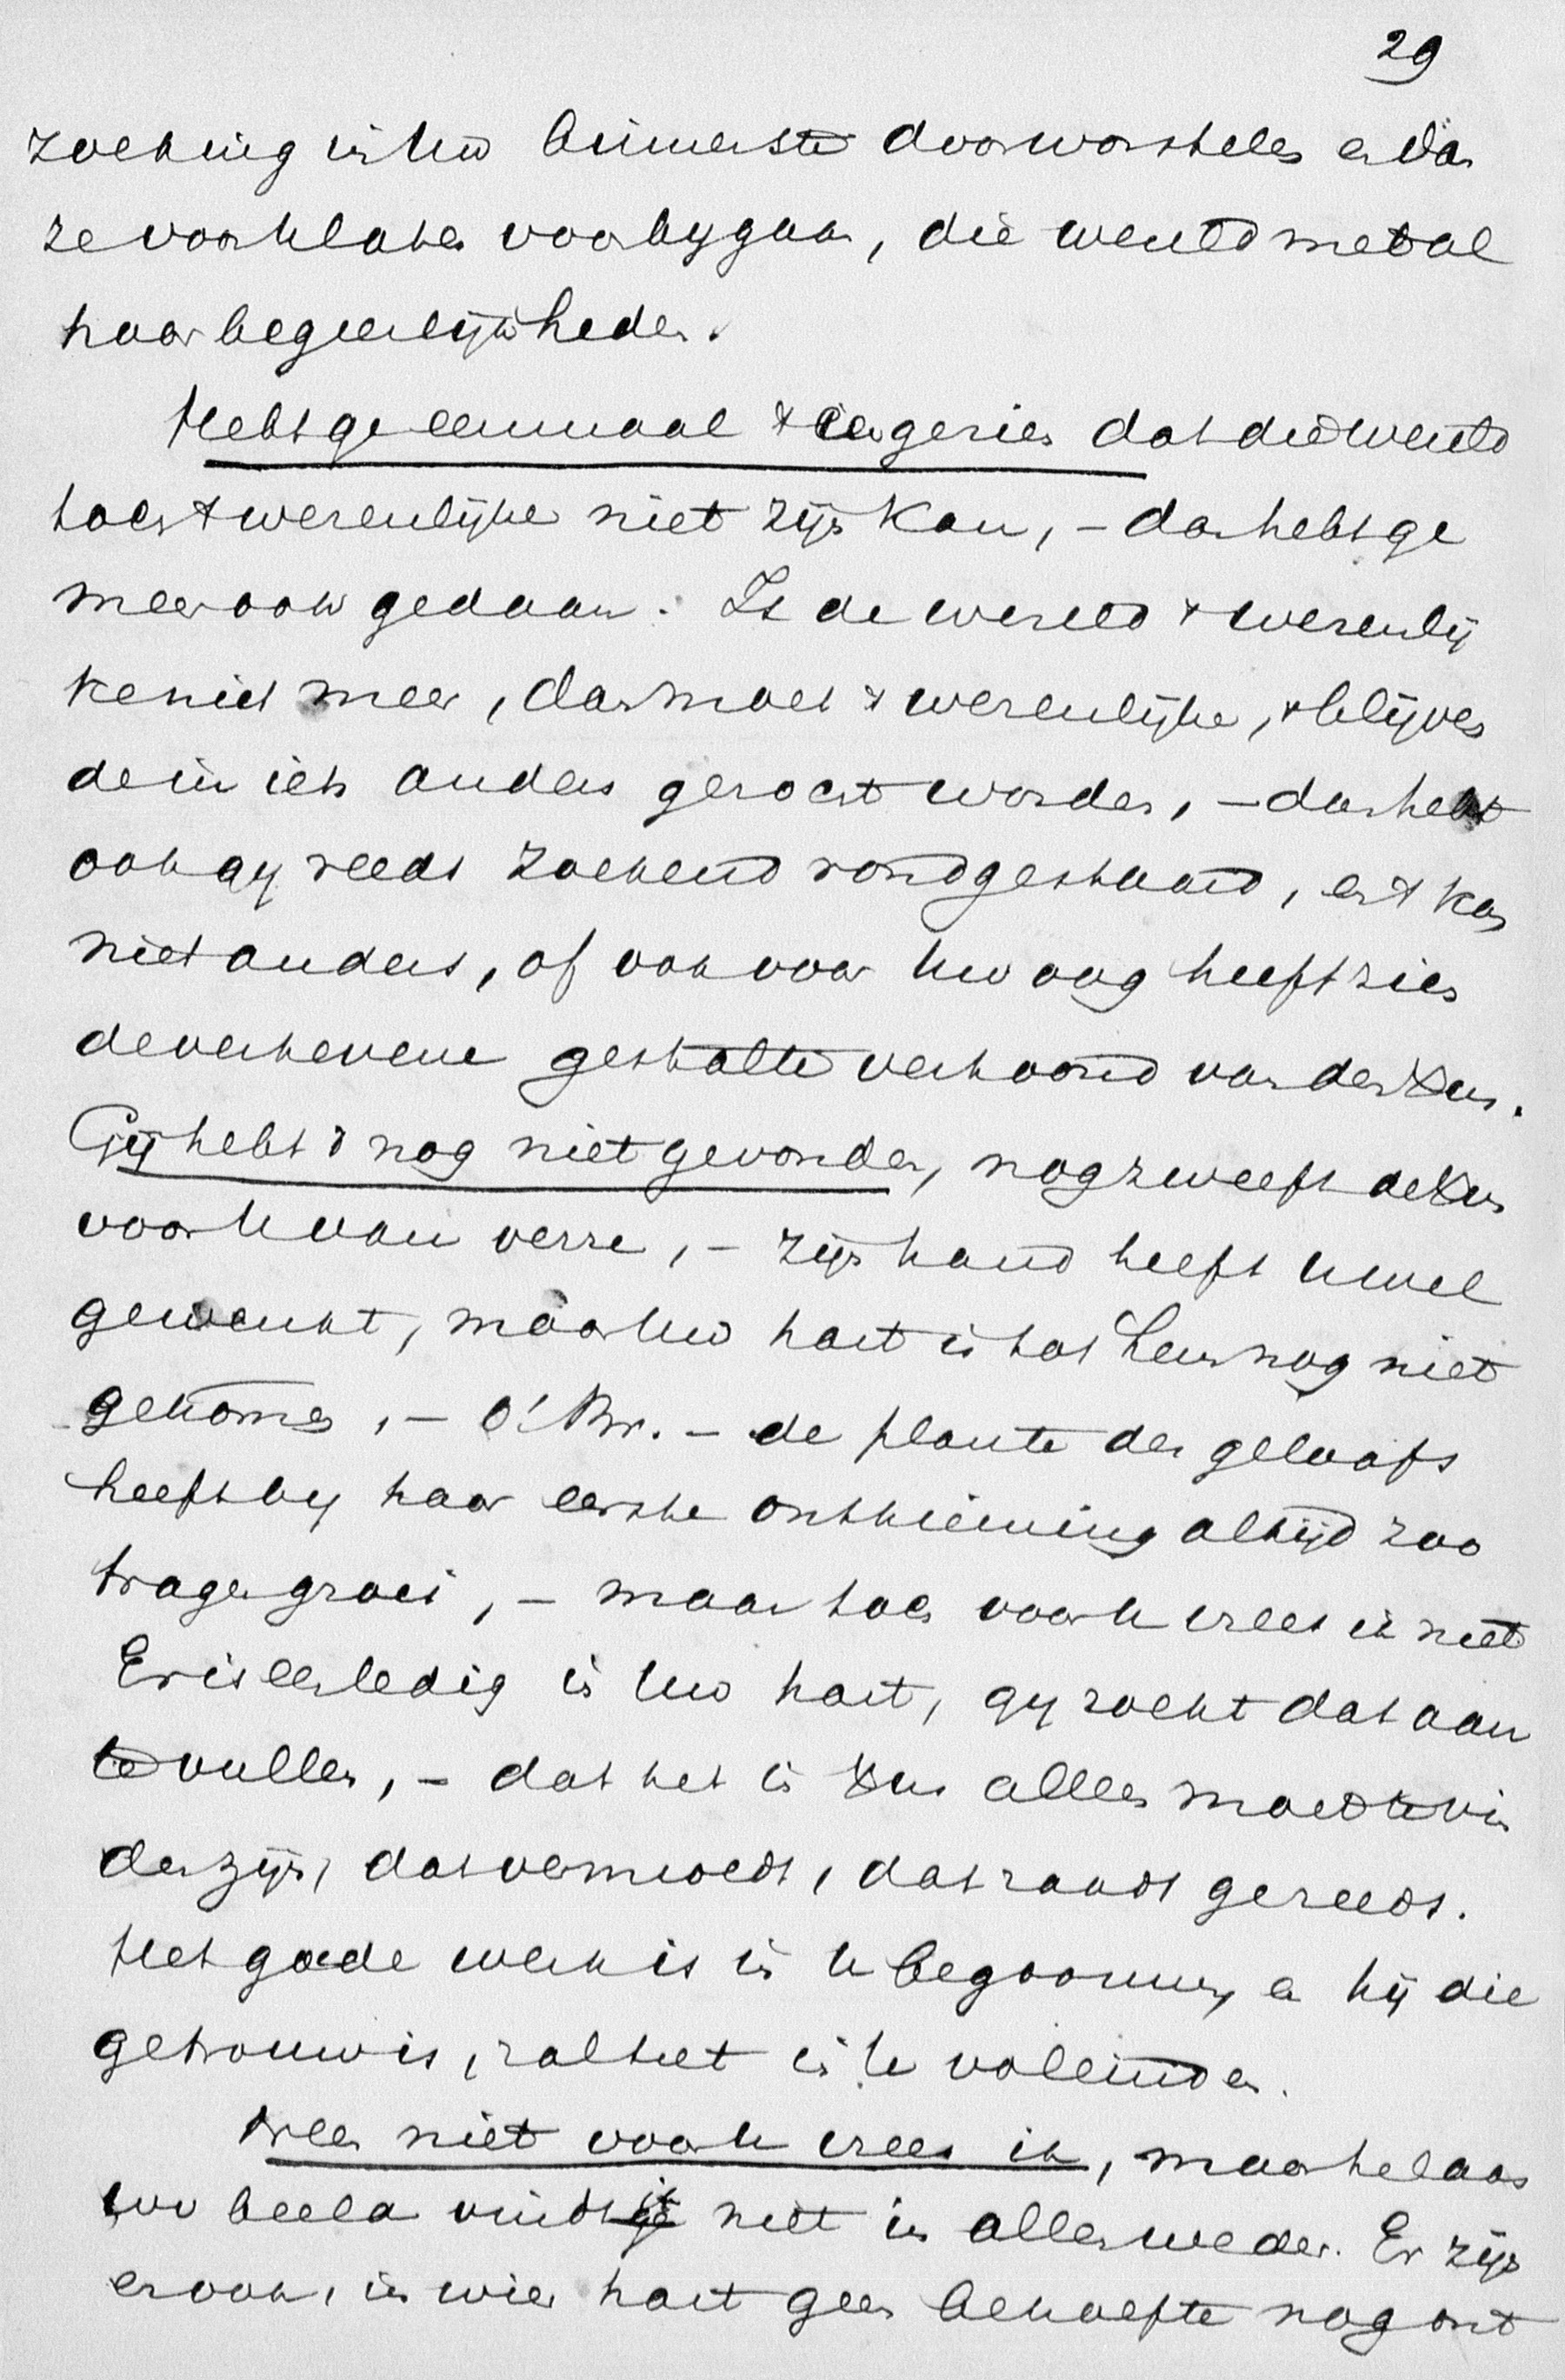 29
zoeking in Uw binnenste doorworstelen en dan
ze voor U laten voorbygaan, die wereld met al
haar begeerlijkheden.
Hebt ge eenmaal 't ingezien dat die wereld
toch 't wezenlijke niet zijn kan, – dan hebt ge
meer ook gedaan. Is de wereld 't wezenlij
ke niet meer, dan moet 't wezenlijke, 't blijven
de in iets anders gezocht worden, – dan hebt
ook gy reeds zoekend rondgestaard, en 't kan
niet anders, of ook voor Uw oog heeft zich
de verhevene gestalte vertoond van den Xus.
Gij hebt 't nog niet gevonden, nog zweeft de Xus
voor U van verre, – zijn hand heeft U wel
gewenkt, maar Uw hart is tot Hem nog niet
gekomen, – o! Br. – de plante des geloofs
heeft by haar eerste ontkieming altijd zoo
tragen groei, – maar toch voor U vrees ik niet
Er is een ledig in Uw hart, gy zoekt dat aan
te vullen, – dat het in Xus alles moet te vin
den zijn, dat vermoedt, dat raadt ge reeds.
Het goede werk is in U begonnen, en hij die
getrouw is, zal het in U voleinden.
Neen niet voor U vrees ik, maar helaas
Uw beeld vindt ik niet in allen weder. Er zijn
er ook, in wier hart geen behoefte nog ont